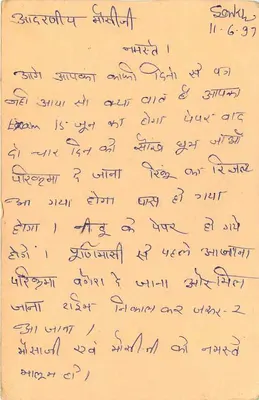 आदरणीय मौसीजी
11-6-97
नमस्ते ।
आगे आपका काफी दिनो से पत्र
नही आया सो क्या बात है आपका
Exam 15 जून का होगा पेपर बाद
दो चार दिन को घूम जाओ
परिक्रमा दे जाना रिंकू का रिजल्ट
आ गया होगा पास हो गया
होगा । के पेपर हो गये
होगे । पूर्णमासी से पहले आजाना
परिक्रमा वगैरा दे जाना और मिल
जाना टाईम निकाल कर जरुर-2
आ जाना ।
मौसाजी एवं मौसीजी को नमस्ते
मालूम हो ।